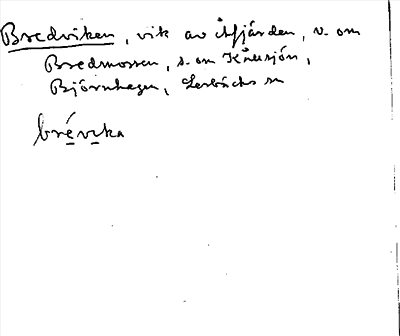 Bredviken, vik av Åfjärden, v. om
Bredmossen, s. om Knusjön,
Björnhagen, Lerbäcks sn
brévika